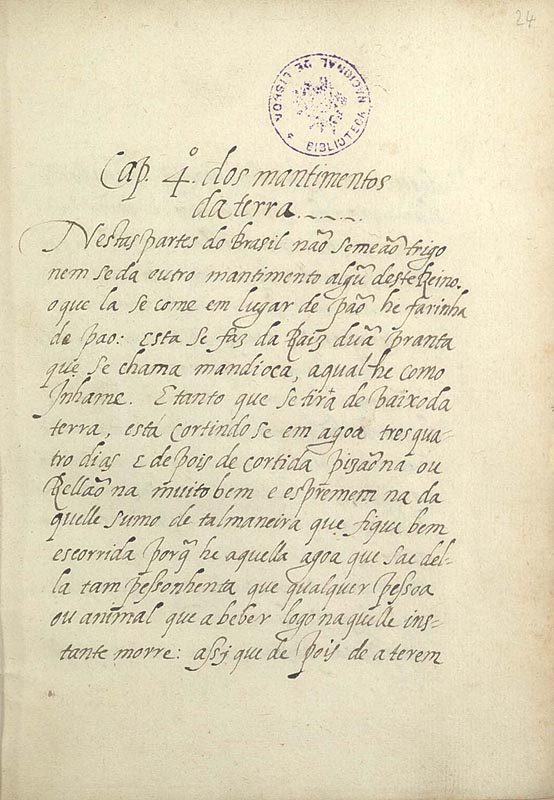 24
BIBLIOTECA NACIONAL DE LISBOA
Cap. 4.º dos mantimentos
da terra.
Nestas partes do Brasil não semeão trigo
nem se da outro mantimento algũ deste Reino.
o que la se come em lugar de pão he farinha
de pao: esta se faz da Raiz duã pranta
que se chama mandioca, aqual he como
Inhame. E tanto que se tira de baixo da
terra, está cortindo se em agoa tres qua-
tro dias E de pois de cortida pisãona ou
Rellão na muito bem e espremem na da
quelle sumo de tal maneira que fique bem
escorrida porq̃ he aquella agoa que sae del-
la tam pessonhenta que qualquer pessoa
ou animal que a beber logo naquelle ins-
tante morre: assj que de pois de a terem